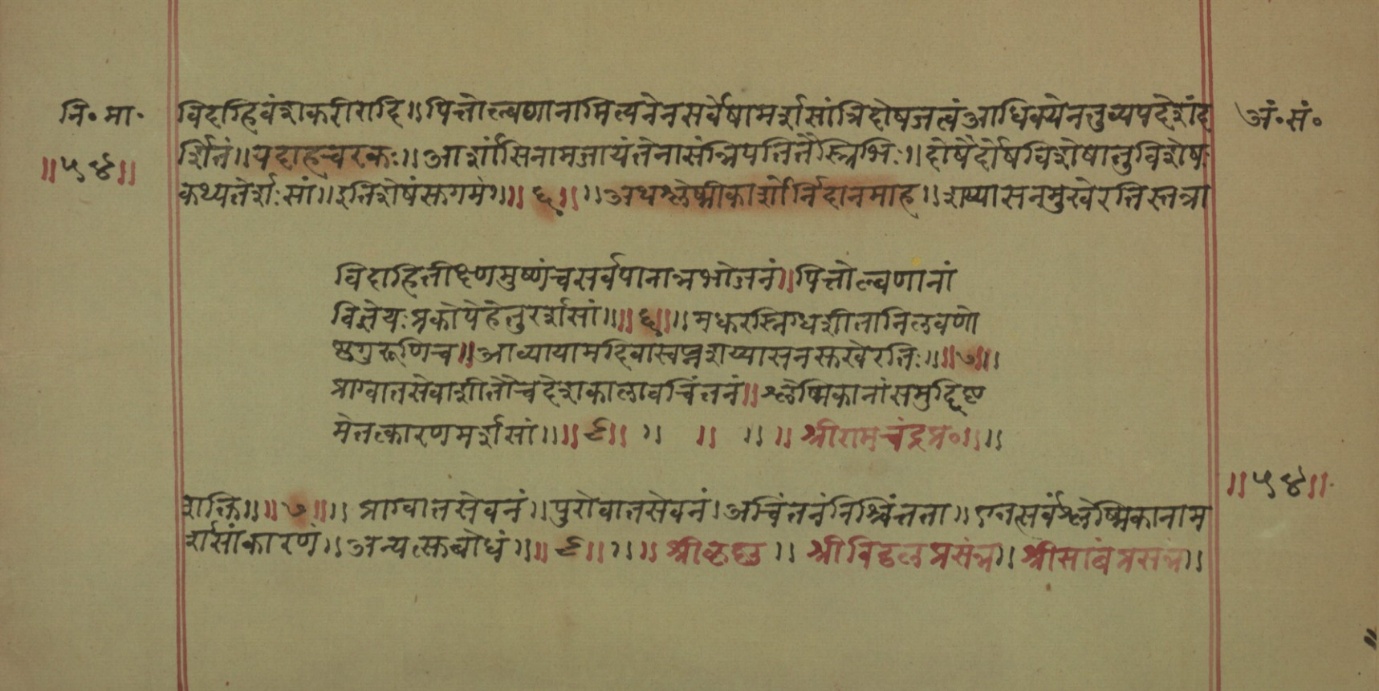 नि॰ मा॰
॥५४॥
अं॰सं॰
विदाहिवंशकरीरादि॥ पित्तोल्वणानामित्यनेनसर्वेषामर्शसांत्रिदोषजत्वंआधिक्येनतुव्यपदेशंद
र्शितं॥ यदाहचरकः॥ आर्शांसिनामजायंतेनासंन्निपतितैस्त्रिभिः॥ दोषैर्दोषविशेषातुविशेषः
कथ्यतेर्शःसां॥ इतिशेषंसुगमं॥ ॥६॥ ॥अथश्लेष्मीकार्शोर्निदानमाह॥ शय्यासनसुखेरतिस्तत्रा
विदाहितीक्ष्णमुष्णंचसर्वपानान्नभोजनं॥ पित्तोल्वणानां
विज्ञेयःप्रकोपेहेतुरर्शसां॥ ॥६॥ ॥मधुरस्निग्धशीतानिलवणो
ष्ठगुरूणिच॥ आव्यायामदिवास्वप्नशय्यासनसुखेरतिः॥ ॥७॥
प्राग्वातसेवाशीतौचदेशकालावचिंतनं॥ श्लेष्मिकानांसमुद्दिष्ट
मेतत्कारणमर्शसां॥ ॥८॥ ॥ ॥ ॥ ॥ श्रीरामचंद्रप्र॰॥ ॥
शक्ति॥ ॥७॥ ॥ प्राग्वातसेवनं॥ पुरोवातसेवनं। अचिंतनंनिश्चिंत्तता॥ एतत्सर्वंश्लेष्मिकानाम
र्शसांकारणं॥ अन्यत्सुबोधं॥ ॥८॥ ॥ ॥ श्री ॥ श्रीविठ्ठलप्रसंन्न॥ श्रीसांबप्रसंन्न॥
॥५४॥